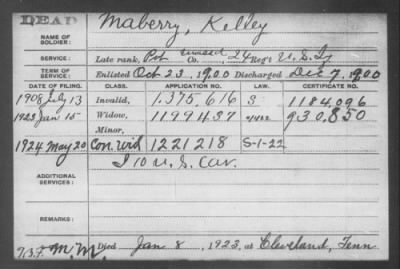 DEAD
Maberry, Kelley
NAME OF SOLDIER:
SERVICE: Late rank, Pvt Co. 24 Reg't U.S. Inf
TERM OF SERVICE: Enlisted Oct 23, 1900 Discharged Dec 7, 1900
DATE OF FILING. CLASS. APPLICATION NO. LAW. CERTIFICATE NO.
1908 July 13 Invalid, 1.375,616 S 1184,096
1923 Jan 15 Widow, 1199437 930,850
Minor,
1924 May 20 Con. Wid 1221218 S-1-22
I 10 U.S. Cav.
ADDITIONAL SERVICES:
REMARKS:
M.M. Died Jan 8, 1923, at Cleveland, Tenn